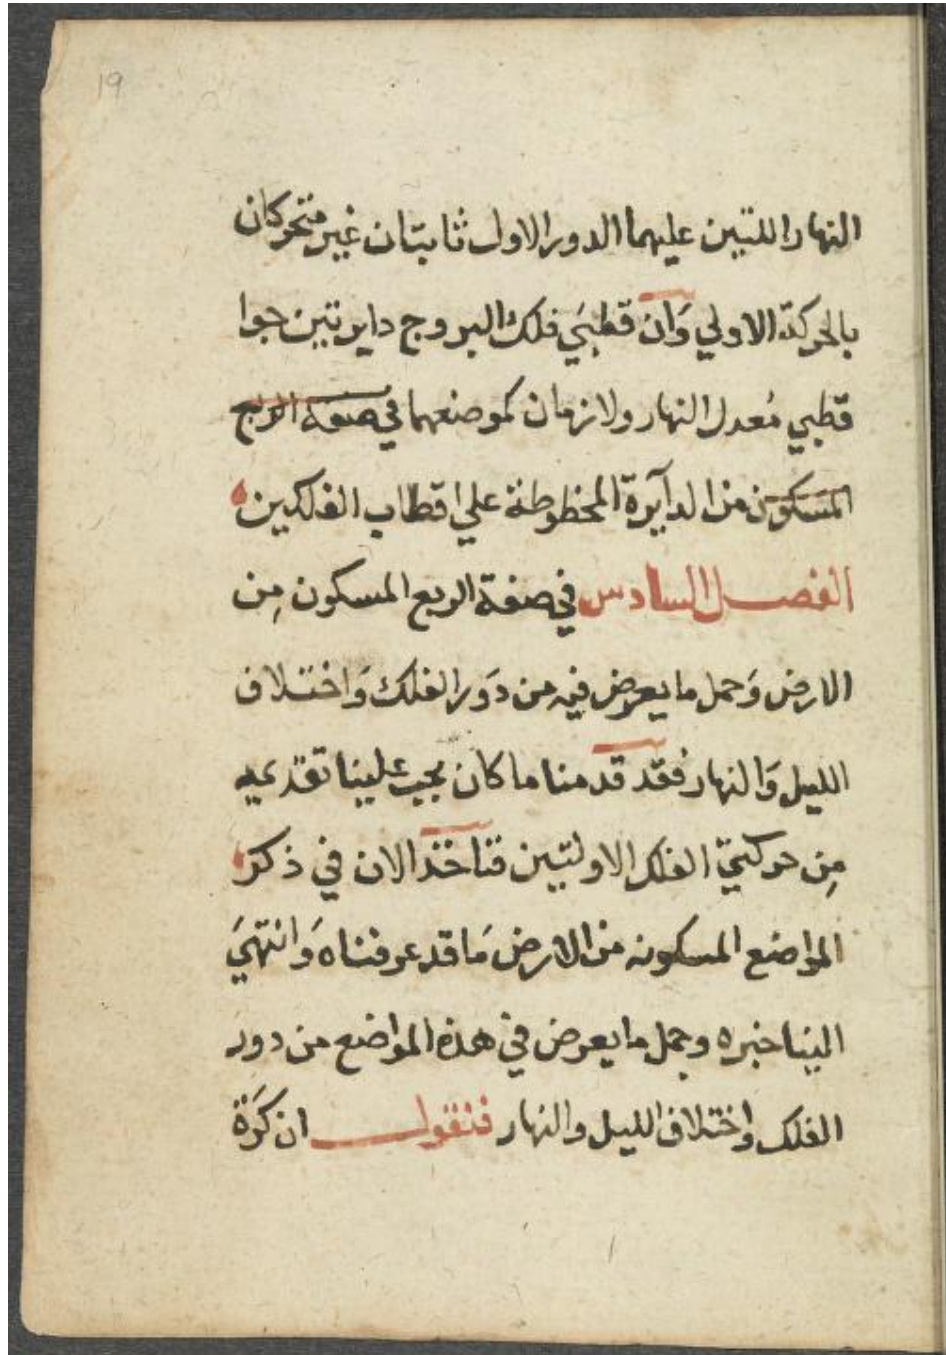 19
النهار اللتين عليهما الدور الاول ثابتان غير متحركان
بالحركة الاولي وَان قطبَي فلك البروج دايرتين حوا
قطبي مُعدل النهار ولازمان كموضعهما في صفة الربع
المسكون من الدآيرة المخطوطة علي اقطاب الفلكين
الفصل السادس في صفة الربع المسكون مِن
الارض وَجمل ما يعرض فيه من دَور الفلك وَاختلاف
الليل وَالنهار فقد قدمنا ما كان يجب علينا تقديمه
مِن حركتيّ الفلك الاولتين فناخذ الان في ذكر
المواضع المسكونه من الارض مَا قد عرفناه وَانتهيَ
الينا خبره وجمل ما يعرض في هذه المواضع من دور
الفلك واختلاف الليل والنهار فنقول ان كَرَة